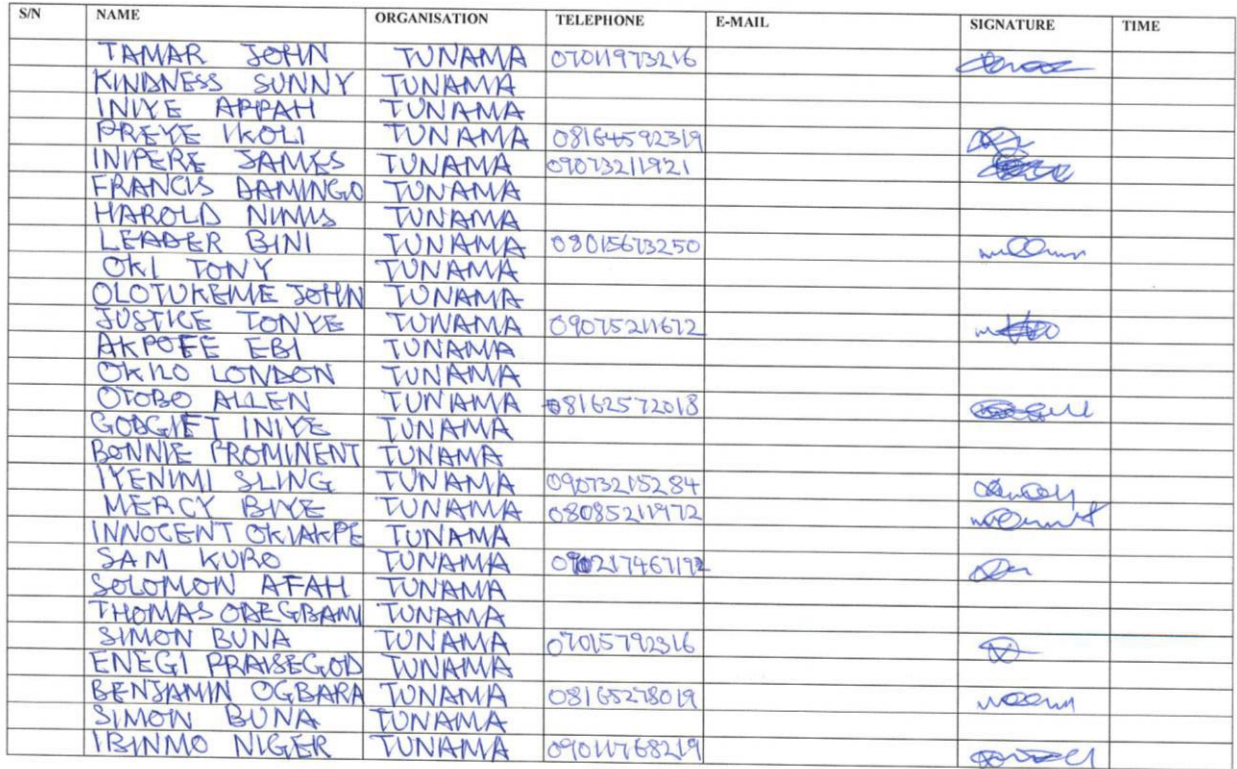 S/N NAME ORGANISATION TELEPHONE E-MAIL SIGNATURE TIME
TAMAR JOHN TUNAMA 07011973216
KINDNESS SUNNY TUNAMA
INIYE APPAH TUNAMA
PREYE IKOLI TUNAMA 08164592319
INIPERE JAMES TUNAMA 09073211921
FRANCIS DAMINGO TUNAMA
HAROLD NIMIS TUNAMA
LEADER BINI TUNAMA 08015673250
OKI TONY TUNAMA
OLOTUKEME JOHN TUNAMA
JUSTICE TONYE TUNAMA 09075211672
AKPOFE EBI TUNAMA
OKILO LONDON TUNAMA
OTOBO ALLEN TUNAMA 08162572018
GODGIFT INIYE TUNAMA
BONNIE PROMINENT TUNAMA
IYENIMI SLING TUNAMA 09073215284
MERCY BIYE TUNAMA 08085211972
INNOCENT OKIAKPE TUNAMA
SAM KURO TUNAMA
SOLOMON AFAH TUNAMA
THOMAS ODEGBAMI TUNAMA
SIMON BUNA TUNAMA 07015792316
ENEGI PRAISEGOD TUNAMA
BENJAMIN OGBARA TUNAMA 08165278019
SIMON BUNA TUNAMA
IBINMO NIGER TUNAMA 09011768219